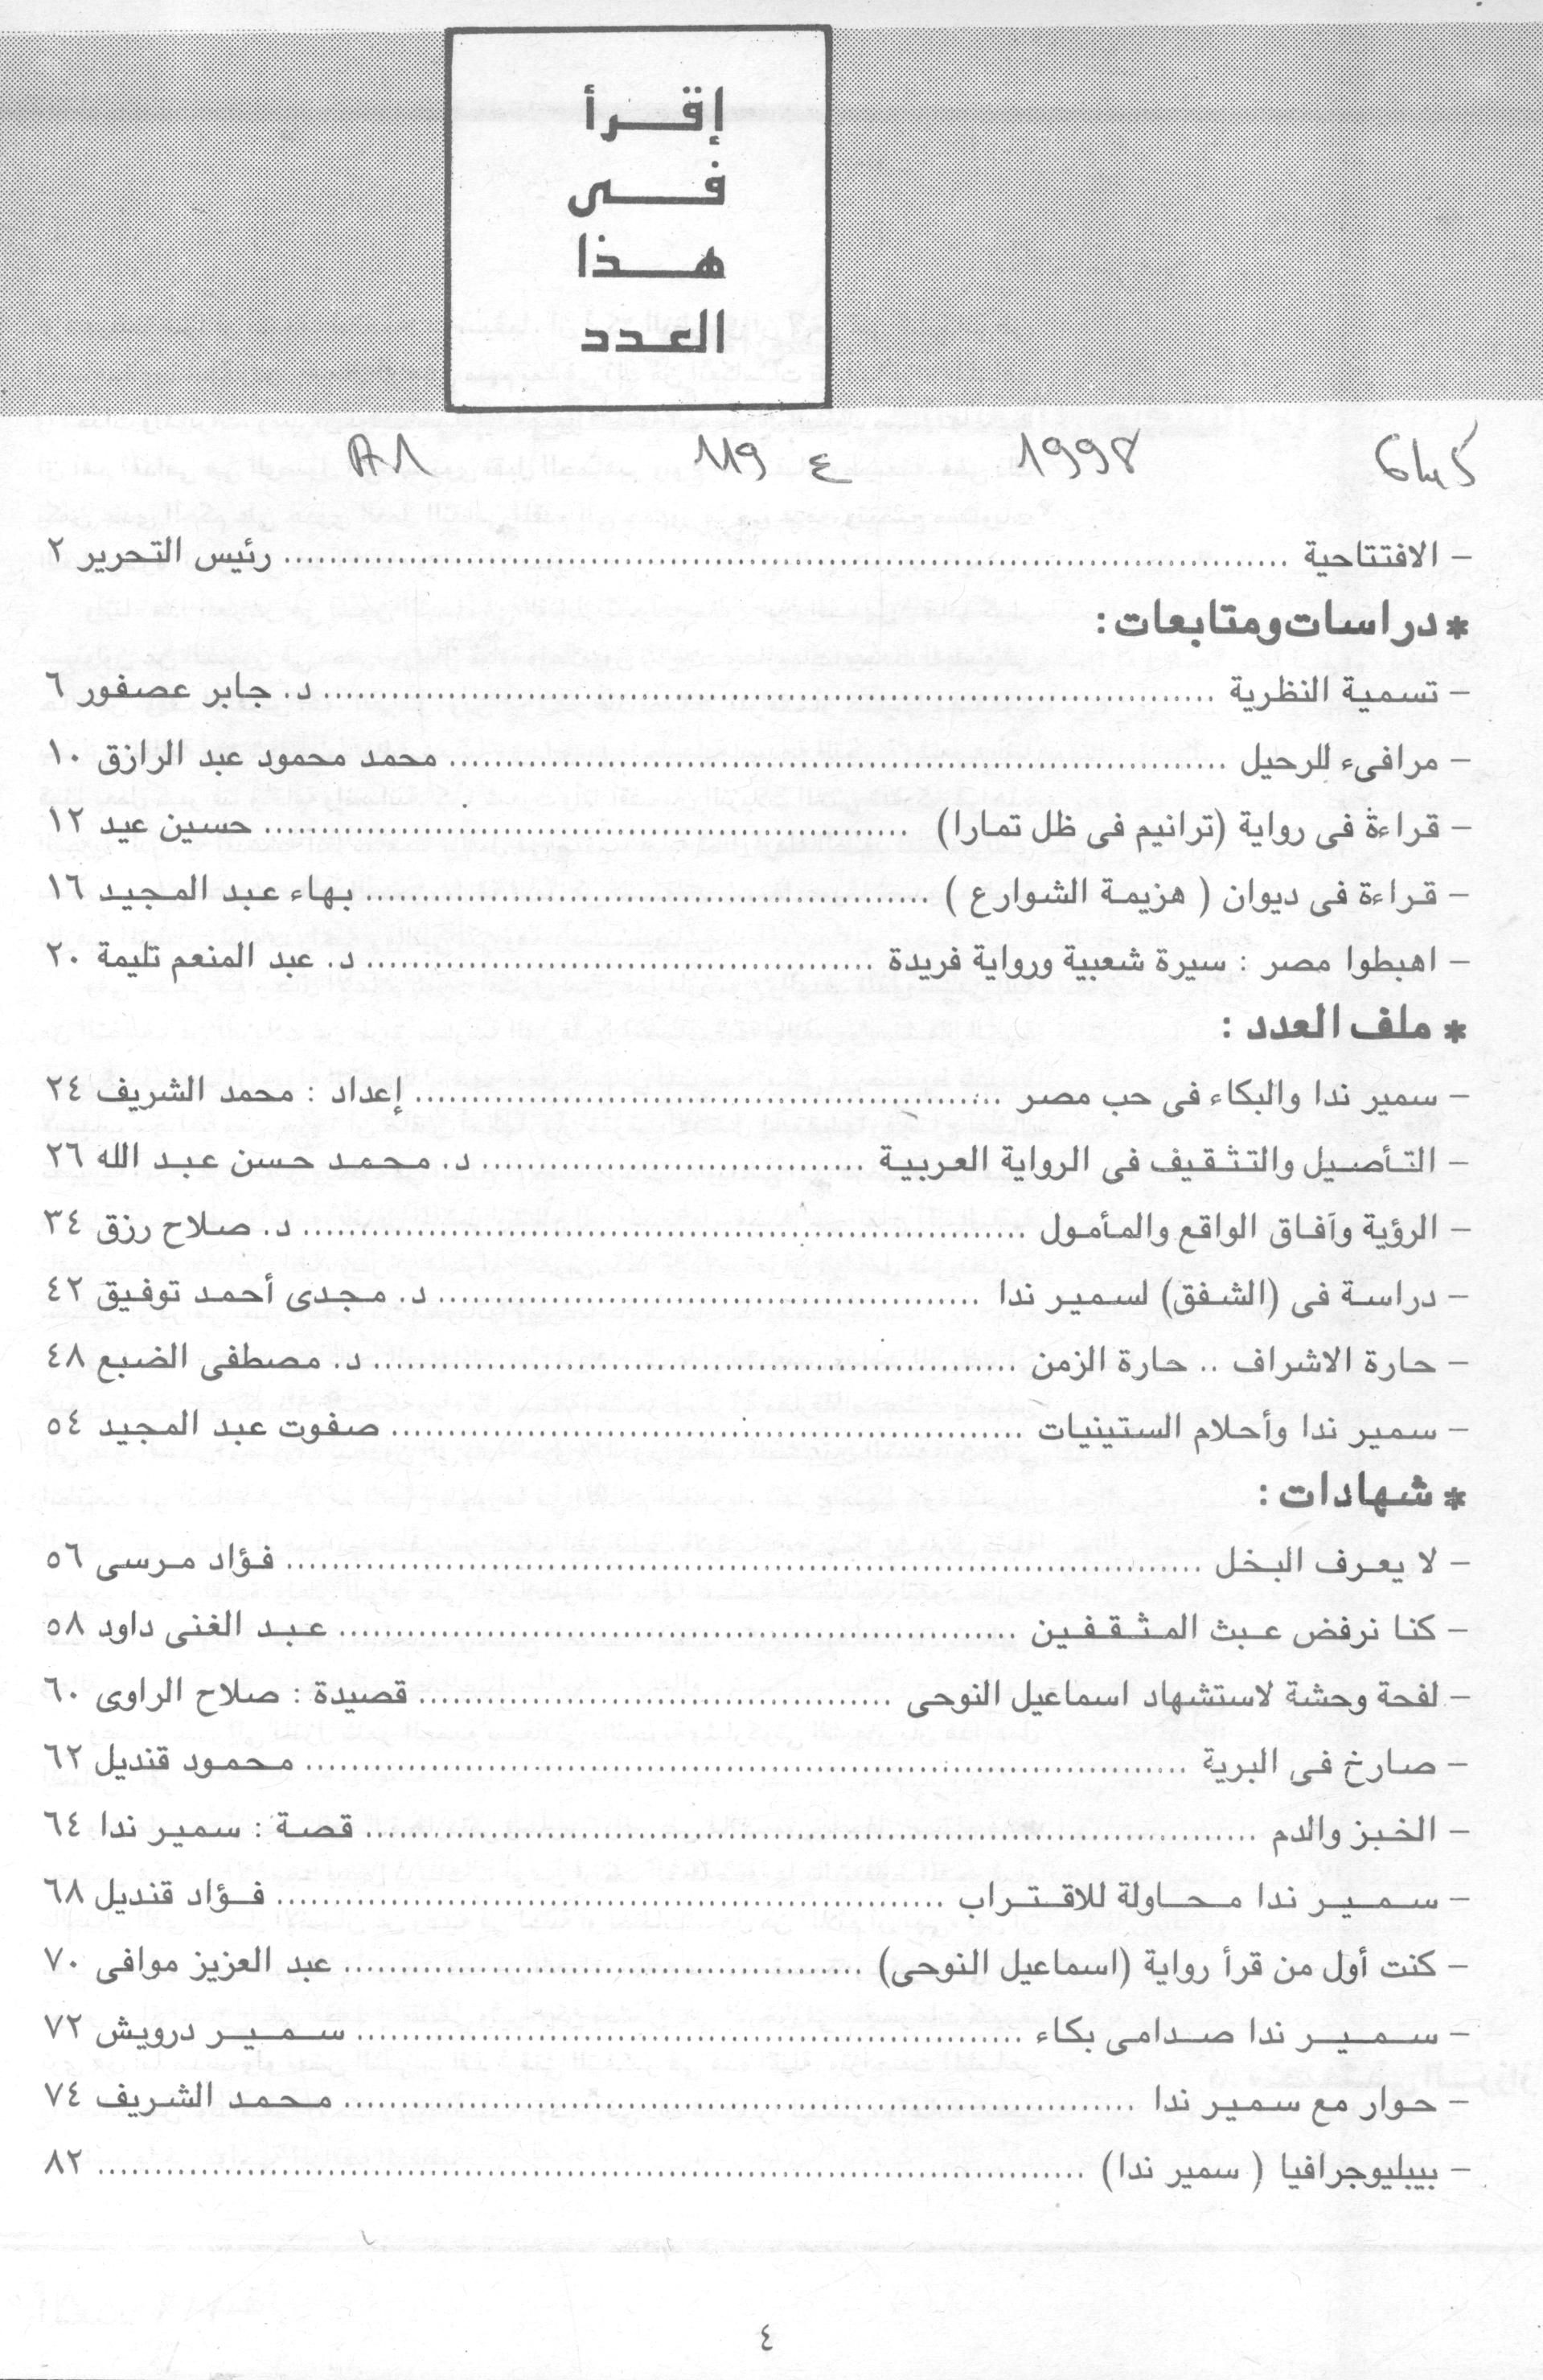 إقرأ
فى
هذا
العدد
1998 119 ع A1
- الافتتاحية ........ رئيس التحرير ٢
* دراسات ومتابعات :
- تسمية النظرية ........ د. جابر عصفور ٦
- مرافىء للرحيل ........ محمد محمود عبد الرازق ١٠
- قراءة فى رواية (ترانيم فى ظل تمارا) ........ حسين عيد ١٢
- قراءة فى ديوان ( هزيمة الشوارع ) ........ بهاء عبد المجيد ١٦
- اهبطوا مصر : سيرة شعبية ورواية فريدة ........ د. عبد المنعم تليمة ٢٠
* ملف العدد :
- سمير ندا والبكاء فى حب مصر ........ إعداد : محمد الشريف ٢٤
- التأصيل والتثقيف فى الرواية العربية ........ د. محمد حسن عبد الله ٢٦
- الرؤية وآفاق الواقع والمأمول ........ د. صلاح رزق ٣٤
- دراسة فى (الشفق) لسمير ندا ........ د. مجدى أحمد توفيق ٤٢
- حارة الاشراف .. حارة الزمن ........ د. مصطفى الضبع ٤٨
- سمير ندا وأحلام الستينيات ........ صفوت عبد المجيد ٥٤
* شهادات :
- لا يعرف البخل ........ فؤاد مرسى ٥٦
- كنا نرفض عبث المثقفين ........ عبد الغنى داود ٥٨
- لفحة وحشة لاستشهاد اسماعيل النوحى ........ قصيدة : صلاح الراوى ٦٠
- صارخ فى البرية ........ محمود قنديل ٦٢
- الخبز والدم ........ قصة : سمير ندا ٦٤
- سمير ندا محاولة للاقتراب ........ فؤاد قنديل ٦٨
- كنت أول من قرأ رواية (اسماعيل النوحى) ........ عبد العزيز موافى ٧٠
- سمير ندا صدامى بكاء ........ سمير درويش ٧٢
- حوار مع سمير ندا ........ محمد الشريف ٧٤
- بيبليوجرافيا ( سمير ندا) ........ ٨٢
٤